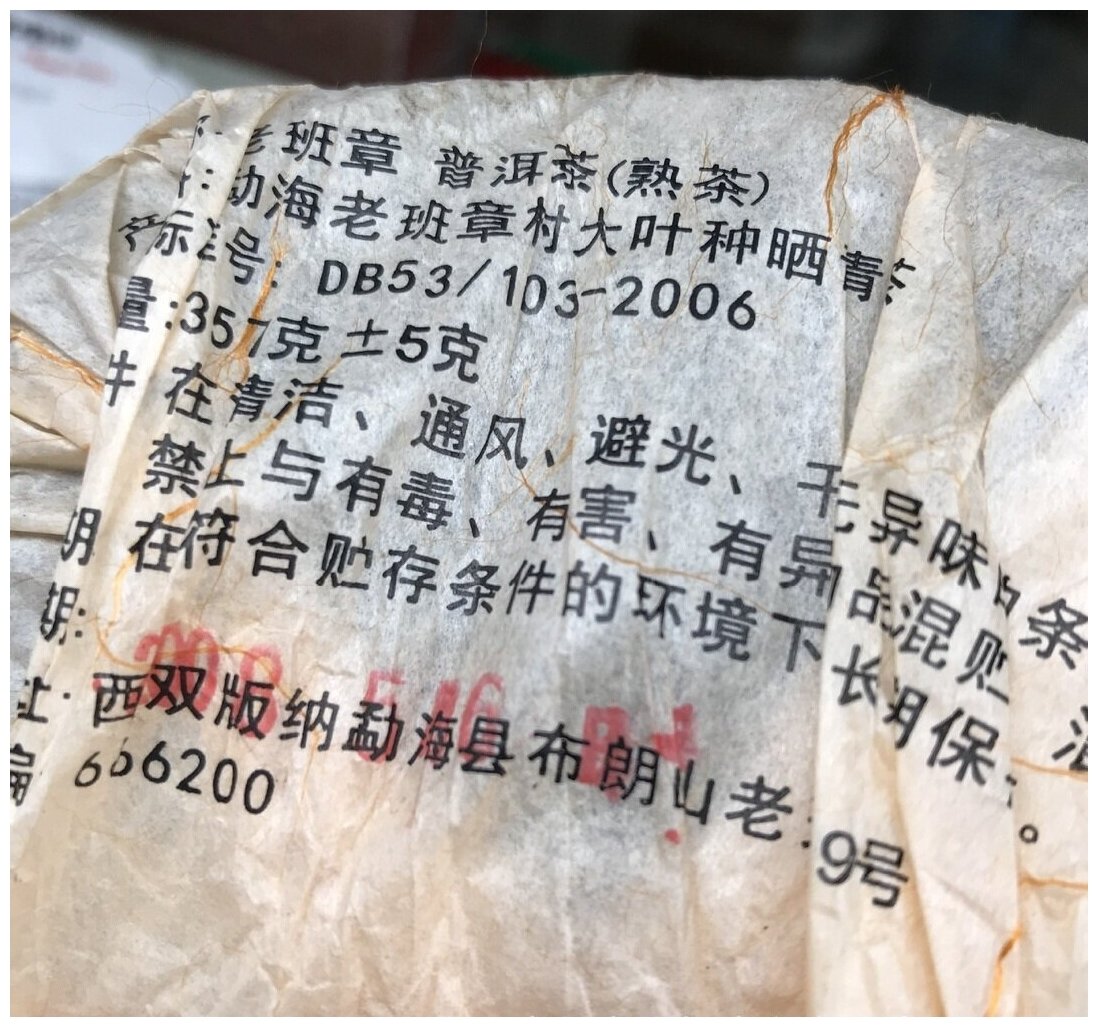 老班章 普洱茶(熟茶)
勐海老班章村大叶种晒青茶
产 标准号: DB53/103-2006
量:357克±5克
件 在清洁、通风、避光、干 无异味的条
禁止与有毒、有害、有异 品混贮
期 在符合贮存条件的环境下 长期保
期: 2008 5 16
址: 西双版纳勐海县布朗山老 9号
编 666200